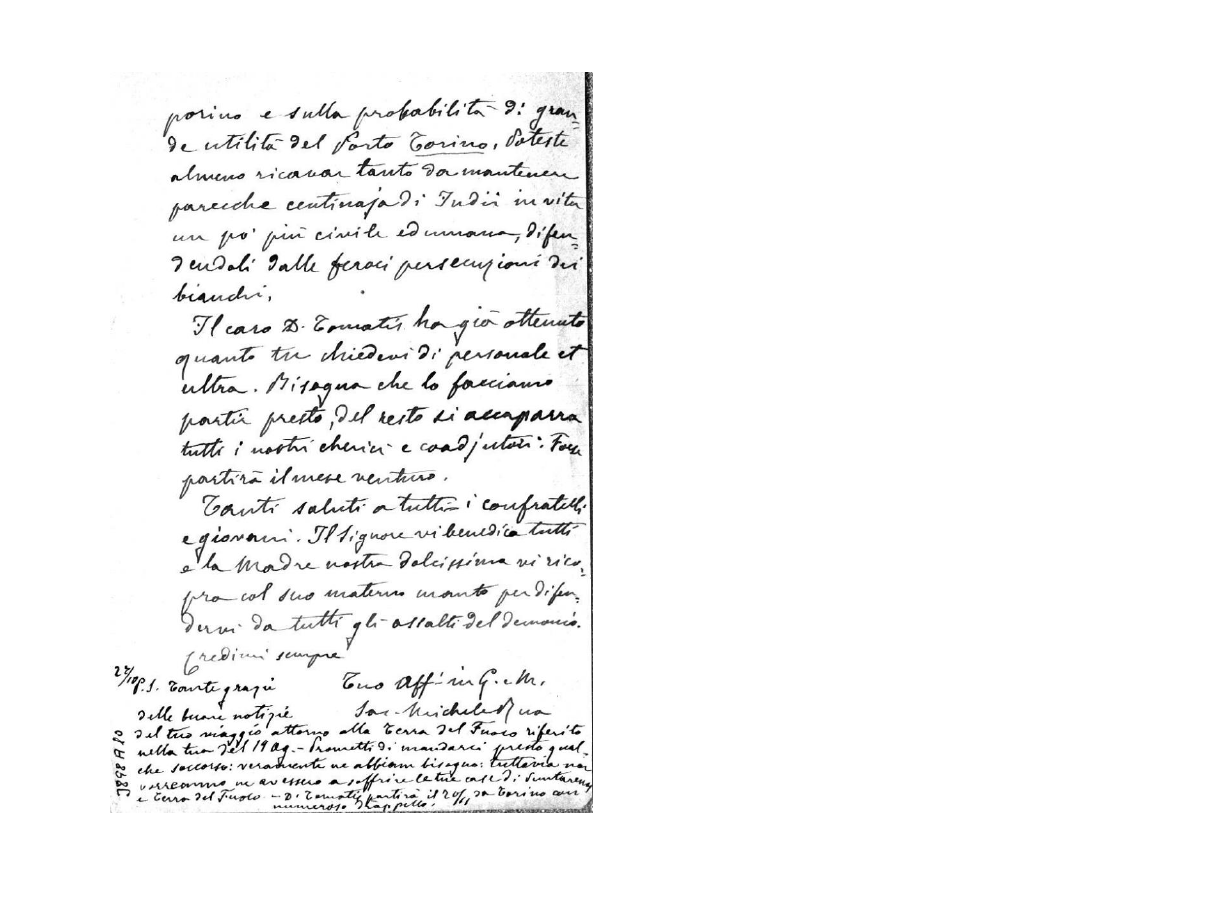 porino e sulla probabilità di gran=
de utilità del Porto Torino. Poteste
almeno ricavar tanto da mantenere
parecche centinaja di Indii in vita
un po' più civile ed umana, difen=
dendoli dalle feroci persecuzioni dei
bianchi.
Il caro D. Tomatis ha già ottenuto
quanto tu chiedevi di personale et
ultra. Bisogna che lo facciamo
partir presto, del resto si accaparra
tutti i nostri cherici e coadjutori: Forse
partirà il mese venturo.
Tanti saluti a tutti i confratelli
e giovani. Il Signore vi benedica tutti
e la Madre nostra dolcissima vi rico=
pra col suo materno manto per difen=
dervi da tutti gli assalti del demonio.
Credimi sempre
Tuo Aff. in G. e M.
Sac. Michele Rua
27/10 P.S. Tante grazie
delle buone notizie
del tuo viaggio attorno alla Terra del Fuoco riferito
nella tua del 19 Ag. - Prometti di mandarci presto qual=
che soccorso: veramente ne abbiam bisogno: tuttavia non
vorremmo ne avessero a soffrire le tue case di Puntarenas
e Terra del Fuoco. - D. Tomatis partirà il 20/11 da Torino con
numeroso drappello.